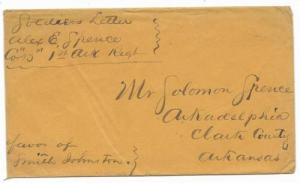 Soldiers Letter
Alex E. Spence
Co "B" 1st Ark Regt
Mr Solomon Spence
Arkadelphia
Clark County
Arkansas
favor of
Smith Johnston.